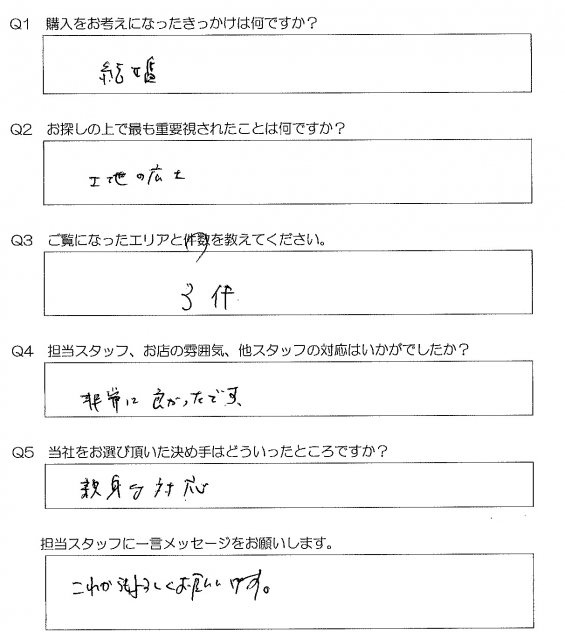 Q1 購入をお考えになったきっかけは何ですか？
結婚
Q2 お探しの上で最も重要視されたことは何ですか？
土地の広さ
Q3 ご覧になったエリアと件数を教えてください。
3件
Q4 担当スタッフ、お店の雰囲気、他スタッフの対応はいかがでしたか？
非常に良かったです。
Q5 当社をお選び頂いた決め手はどういったところですか？
親身な対応
担当スタッフに一言メッセージをお願いします。
これからもよろしくお願いします。